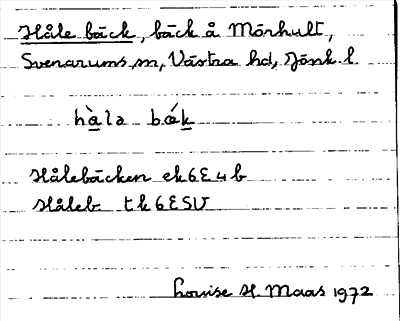 Håle bäck, bäck å Mörhult,
Svenarums sn, Västra hd, Jönk. l.
hàla bák
Hålebäcken ek 6E 4 b
Håleb tk 6E SV
Louise H. Maas 1972